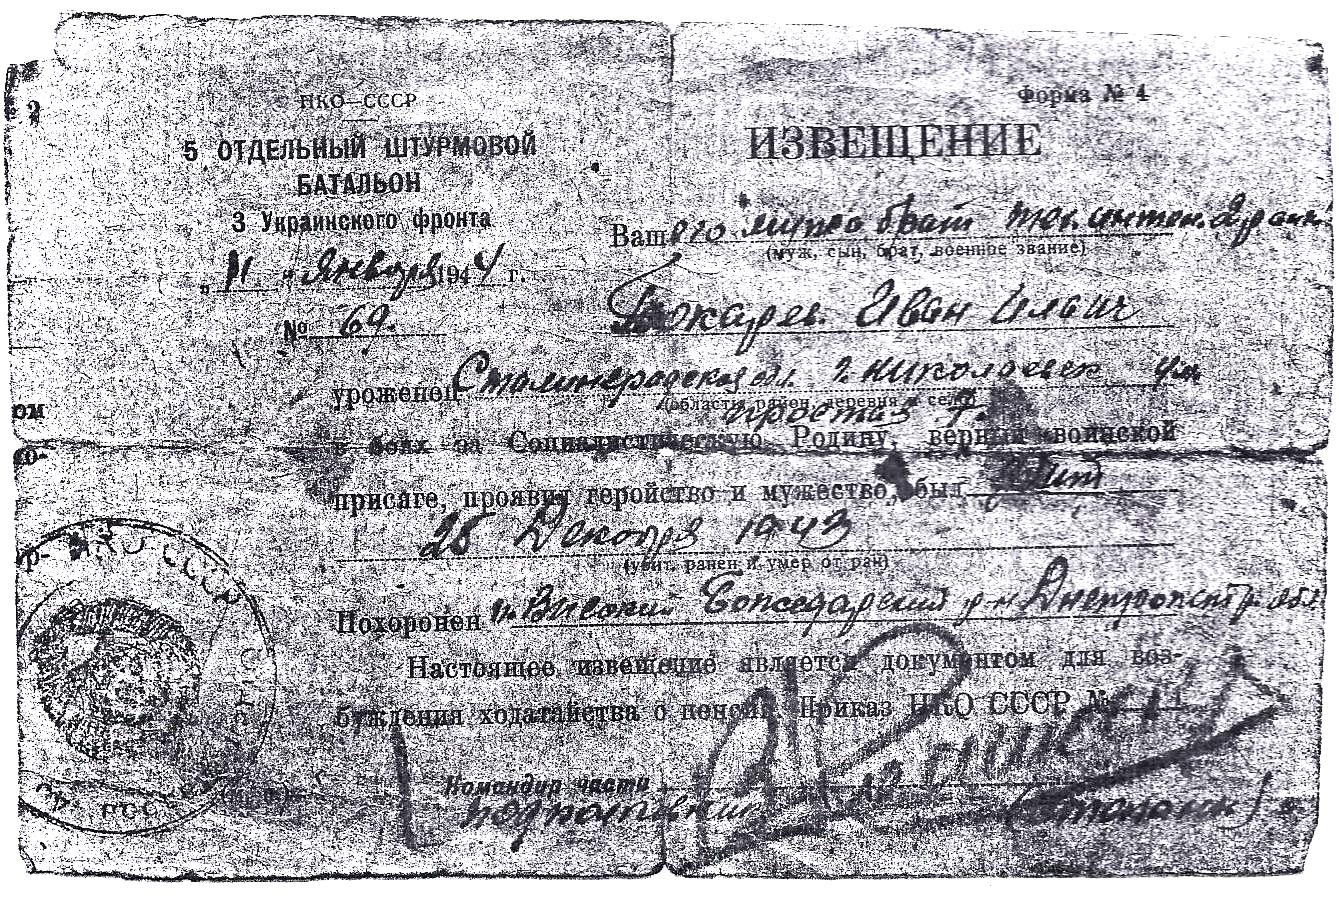 2
НКО—СССР
5 ОТДЕЛЬНЫЙ ШТУРМОВОЙ
БАТАЛЬОН
3 Украинского фронта
„11 " Января 1944 г.
№ 69.
Форма № 4
ИЗВЕЩЕНИЕ
Ваш брат
(муж, сын, брат, военное звание)
Бокарев Иван Ильич
уроженец Сталинградская обл. г. Николаевск
(область, район, деревня и село)
ом
в боях за Социалистическую Родину, верный воинской
о-
присяге, проявив геройство и мужество, был убит
26 Декабря 1943
р-
НКО СССР
(убит, ранен и умер от ран)
Похоронен Высокий р-н Днепропетр. обл.
Настоящее извещение является документом для воз-
буждения ходатайства о пенсии. Приказ НКО СССР №
Командир части